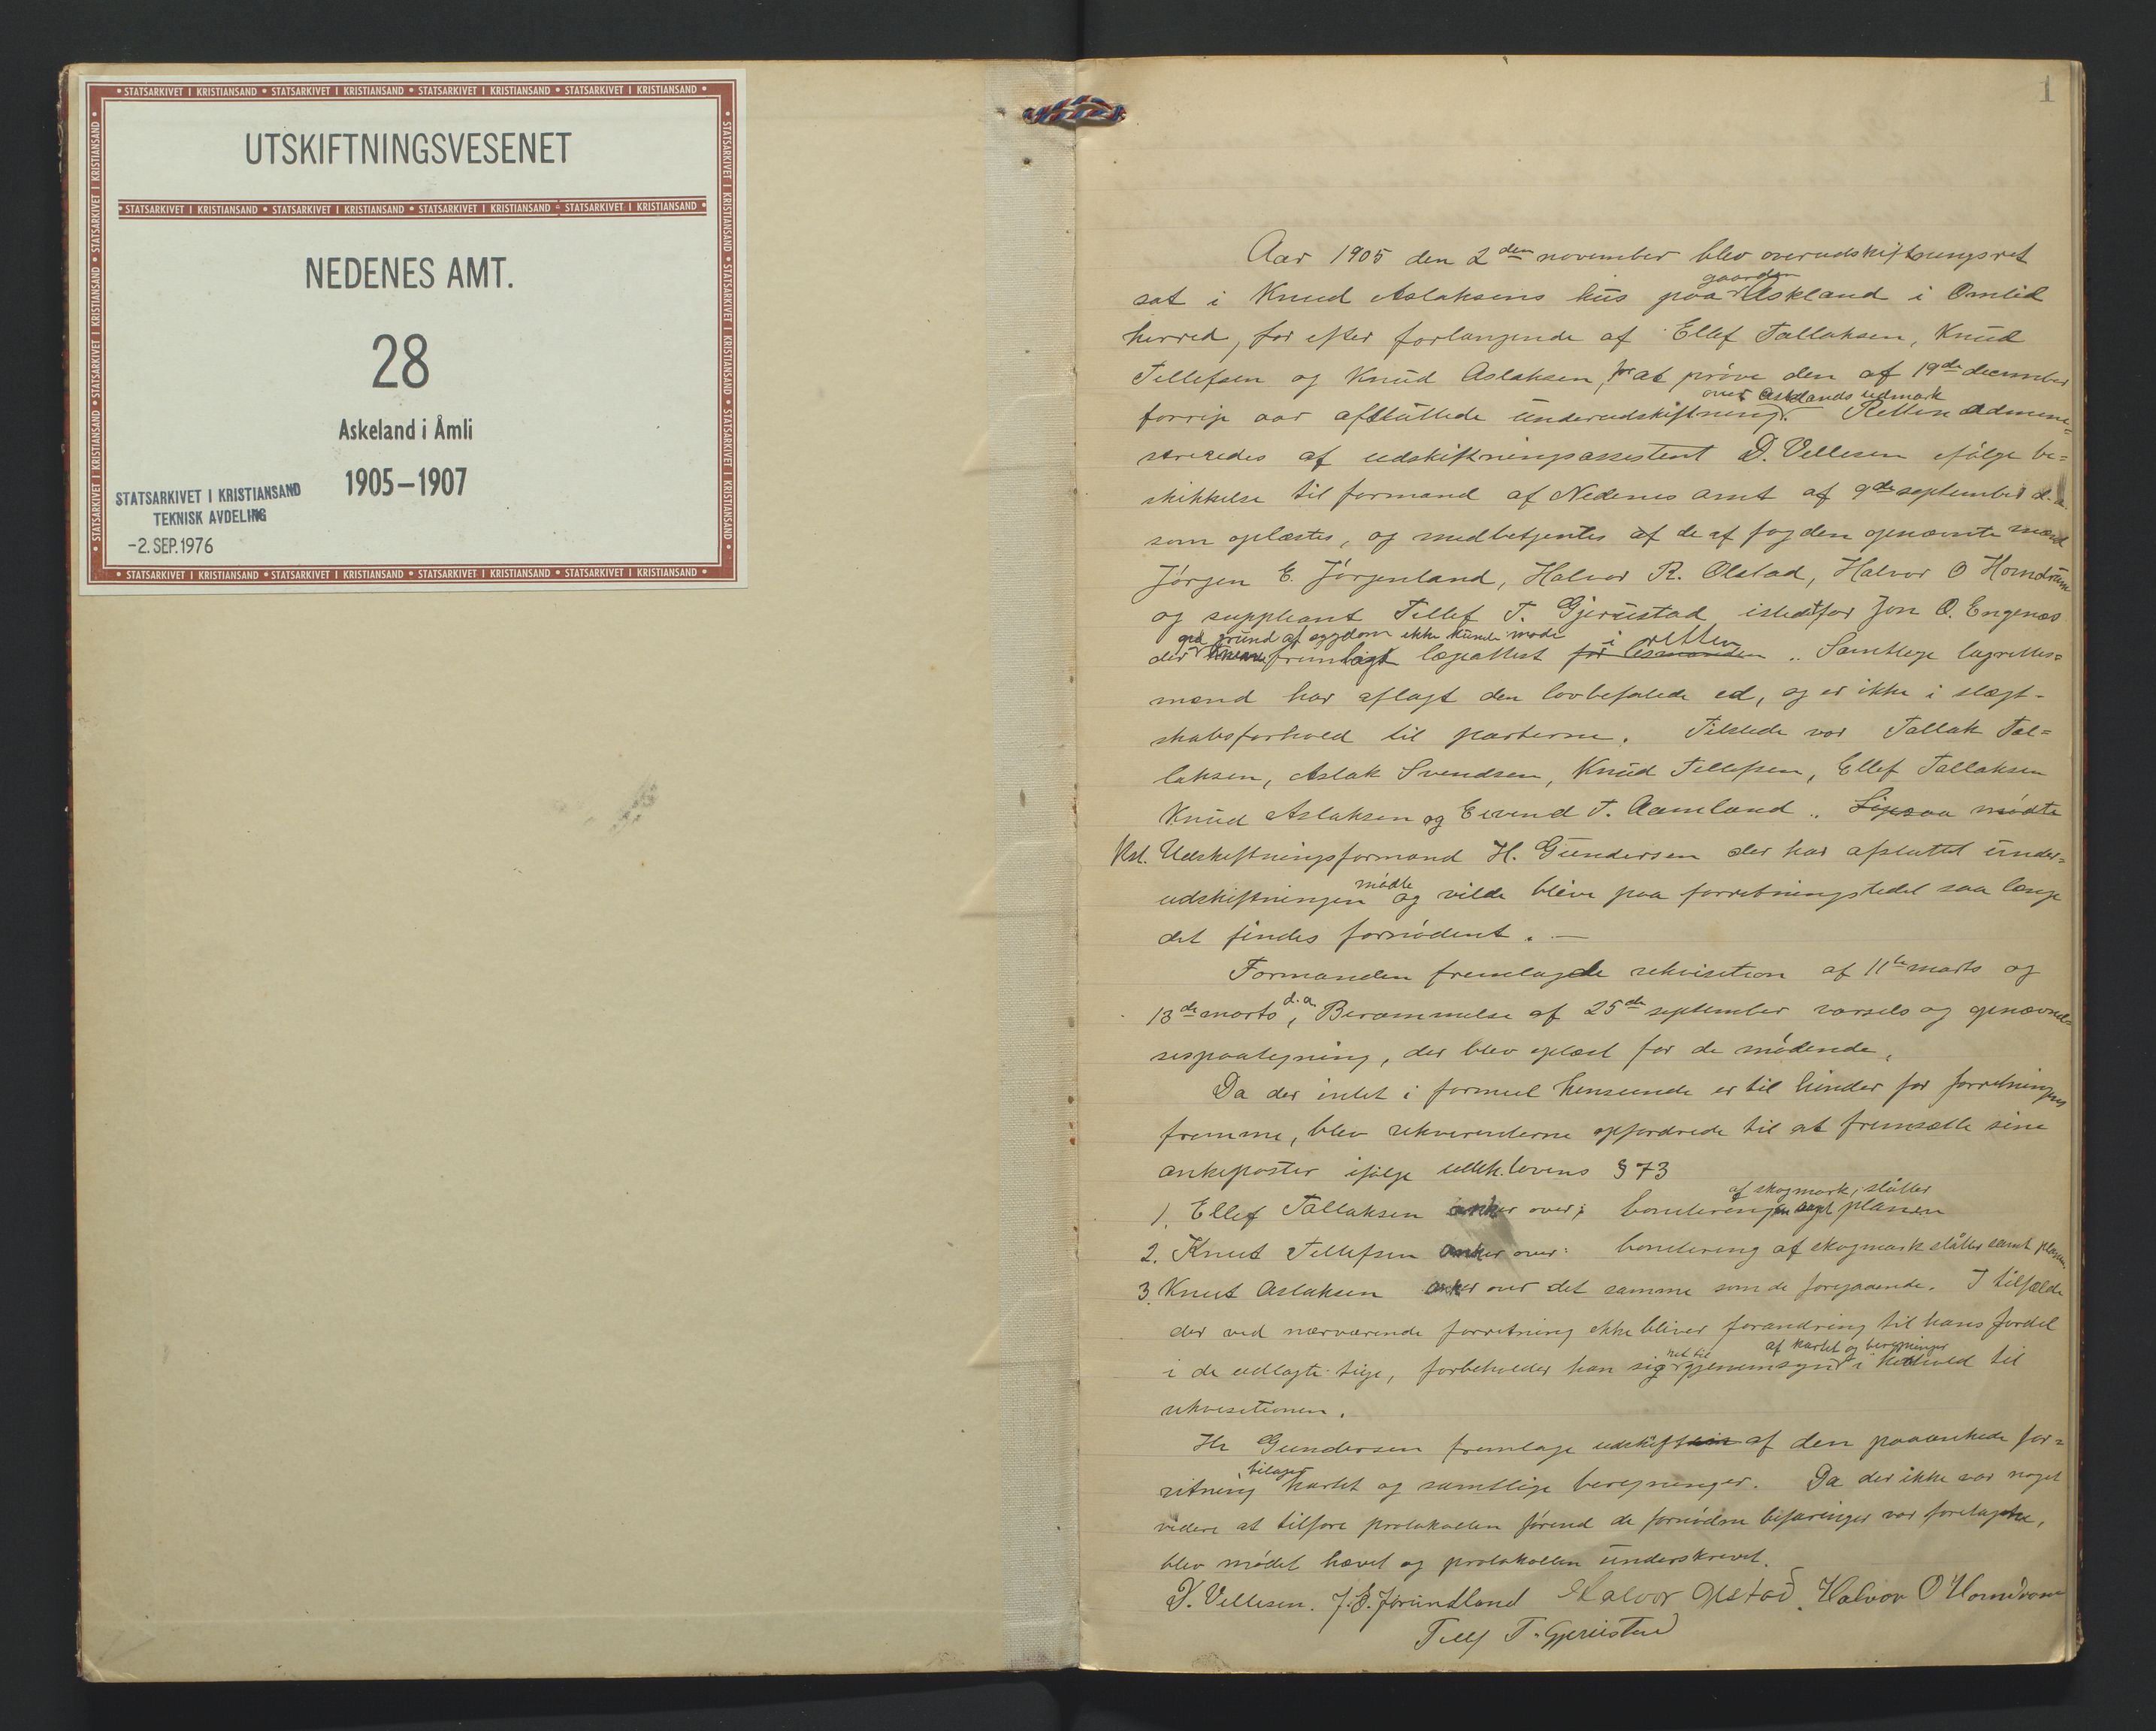 UTSKIFTNINGSVESENET
NEDENES AMT.
28
Askeland i Åmli
1905–1907
STATSARKIVET I KRISTIANSAND
TEKNISK AVDELING
-2. SEP. 1976
1
Aar 1905 den 2den november blev overudskiftningsret
sat i Knud Aslaksens hus paa gaarden Askland i Omlid
herred, for efter forlangende af Ellef Tallaksen, Knud
Tellefsen og Knud Aslaksen, for at prøve den af 19de december
forrige aar afsluttede underudskiftning over Asklands udmark. Retten admini=
streredes af udskiftningsassistent D. Vellesen ifølge be=
skikkelse til formand af Nedenes amt af 9de september d.a.
som oplæstes, og medbetjentes af de af fogden opnævnte mænd
Jørgen E. Jørgenland, Halvor R. Olstad, Halvor O Homdrom
og suppleant Tellef T. Gjerustad istedetfor Jon O. Engenæs
der paa grund af sygdom ikke kunde møde fremlagt lægeattest i retten. Samtlige lagrettes=
mænd har aflagt den lovbefalede ed, og er ikke i slægt-
skabsforhold til parterne. Tilstede var Tallak Tal=
laksen, Aslak Svendsen, Knud Tellefsen, Ellef Tallaksen
Knud Aslaksen og Eivend T. Aamland. Ligesaa mødte
Udskiftningsformand H. Gundersen der har afsluttet under=
udskiftningen mødte og vilde blive paa forretningstedet saa længe
det findes fornødent. —
Formanden fremlagde rekvisition af 11te marts og
13de marts d.a., Berammelse af 25de september varsels og opnævnel=
sespaategning, der blev oplæst for de mødende.
Da der intet i formel henseende er til hinder for forretningens
fremme, blev rekvirenterne opfordrede til at fremsætte sine
ankeposter ifølge udsk. lovens § 73
1. Ellef Tallaksen anker over; bonitering af skogmark, slåtter samt planen
2. Knut Tellefsen anker over: bonitering af skogmark slåtter samt planen
3. Knut Aslaksen anker over det samme som de foregaaende. I tilfælde
der ved nærværende forretning ikke bliver forandring til hans fordel
i de udlagte teige, forbeholder han sig ret til gjennemsyn af kartet og beregninger i henhold til
rekvisitionen.
Hr Gundersen fremlage udskift af den paaankede for=
retning bilager kartet og samtlige beregninger. Da der ikke var noget
videre at tilføre protokollen førend de fornødne befaringer var foretagne,
blev mødet hævet og protokollen underskrevet.
D. Vellesen. J. E. Jørundland Halvor Olstad. Halvor O Homdrom
Tellef T. Gjerustad